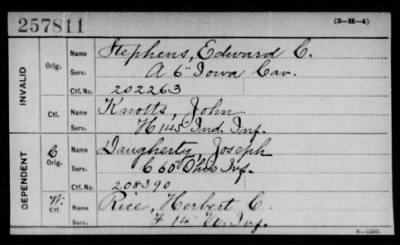 257811
(3-H-4)
INVALID
Orig.
Name
Stephens, Edward C.
Serv.
A 6" Iowa Cav.
Ctf. No.
202263
Ctf.
Name
Knotts, John
Serv.
H 145 Ind. Inf.
DEPENDENT
C
Orig.
Name
Daugherty, Joseph
Serv.
C 60" Ohio Inf.
Ctf. No.
208390
W.
Ctf.
Name
Rice, Herbert C.
Serv.
F 14"
Inf.